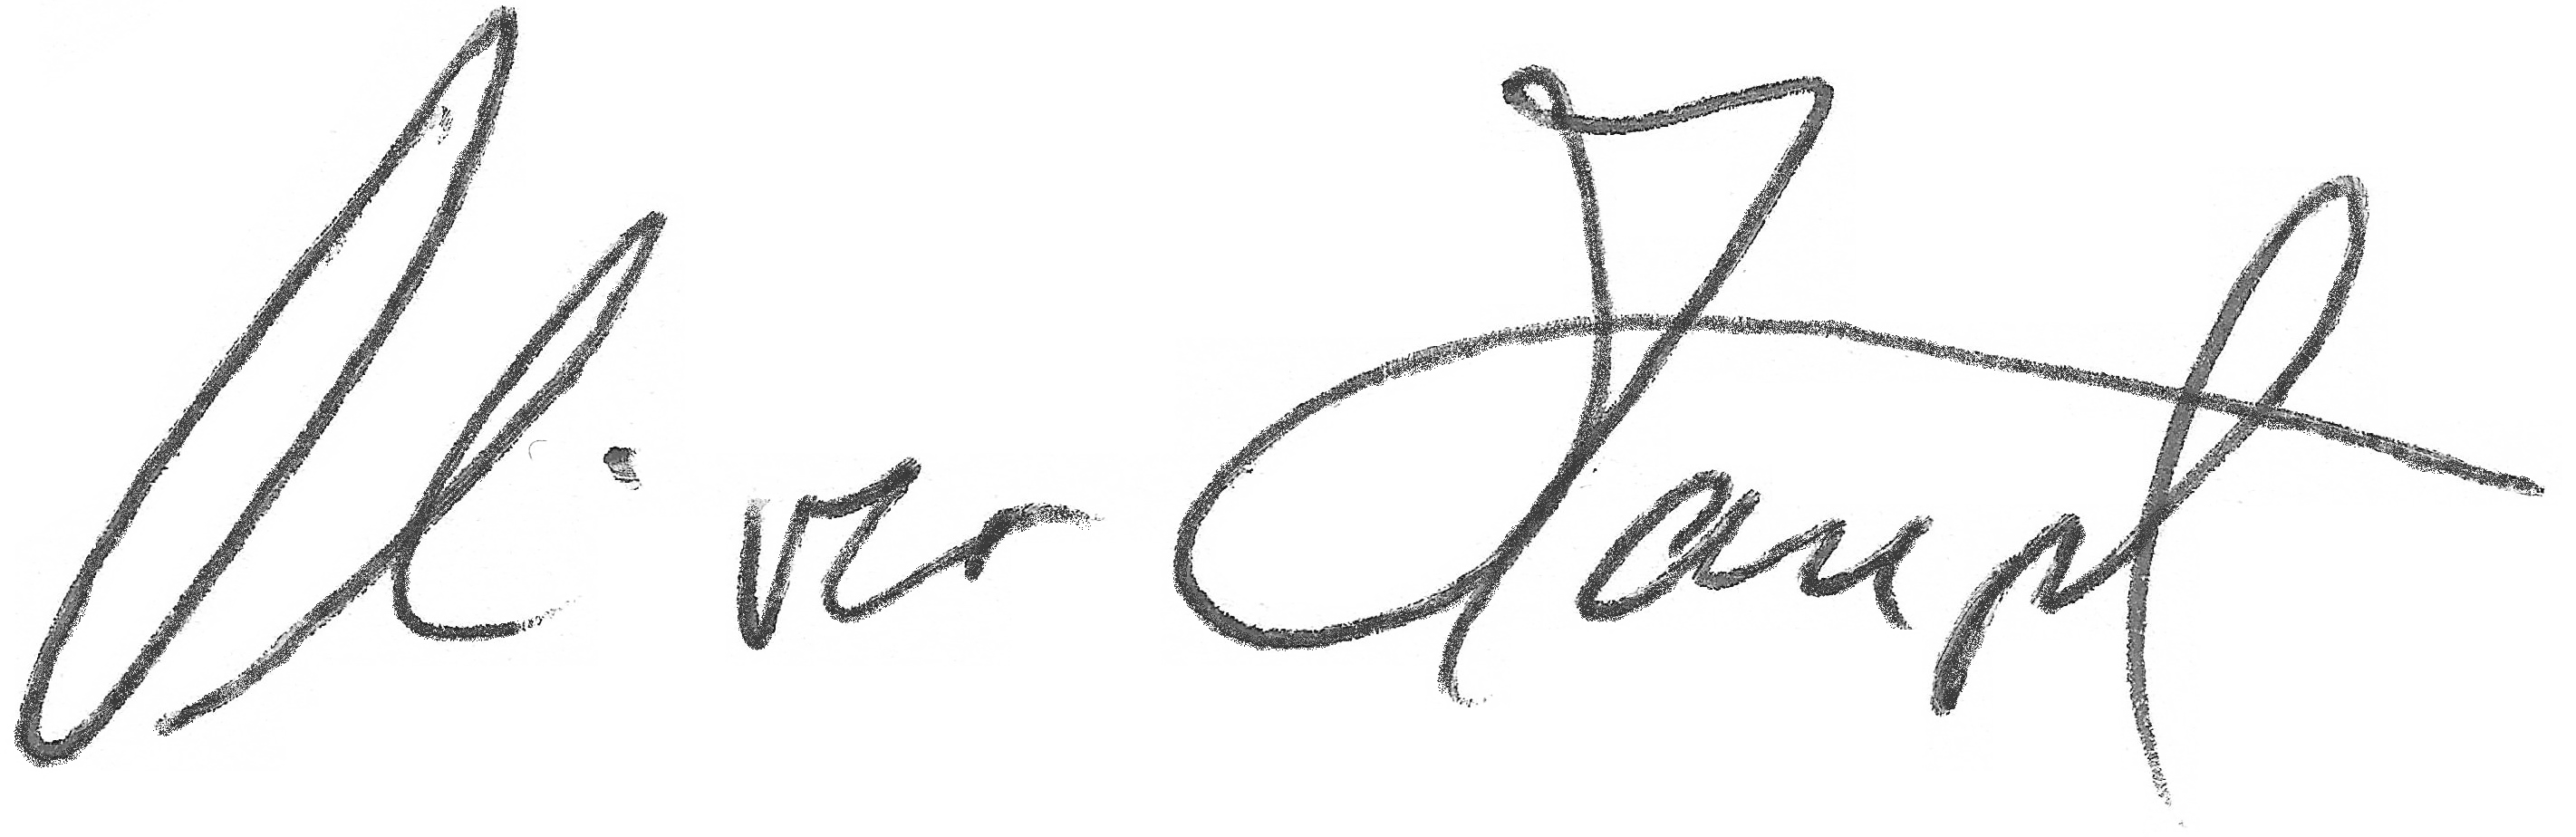 Oliver Haupt